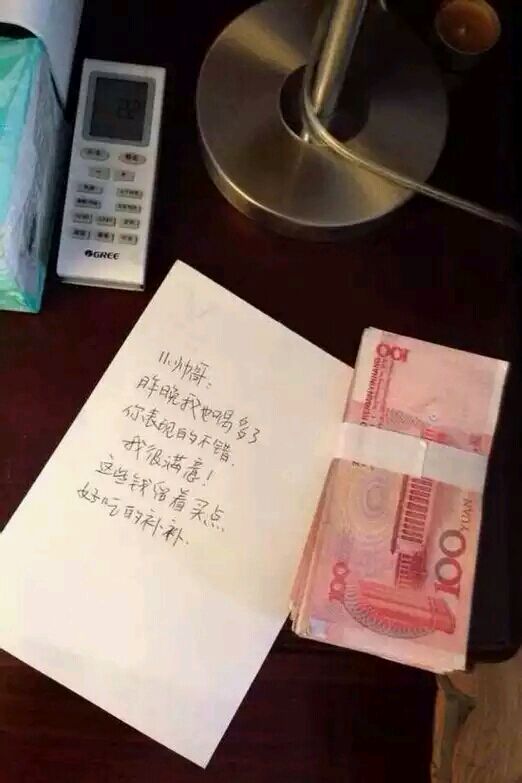 22
GREE
小帅哥:
昨晚我也喝多了
你表现的不错.
我很满意!
这些钱留着买点
好吃的补补.
100
100
100
YUAN